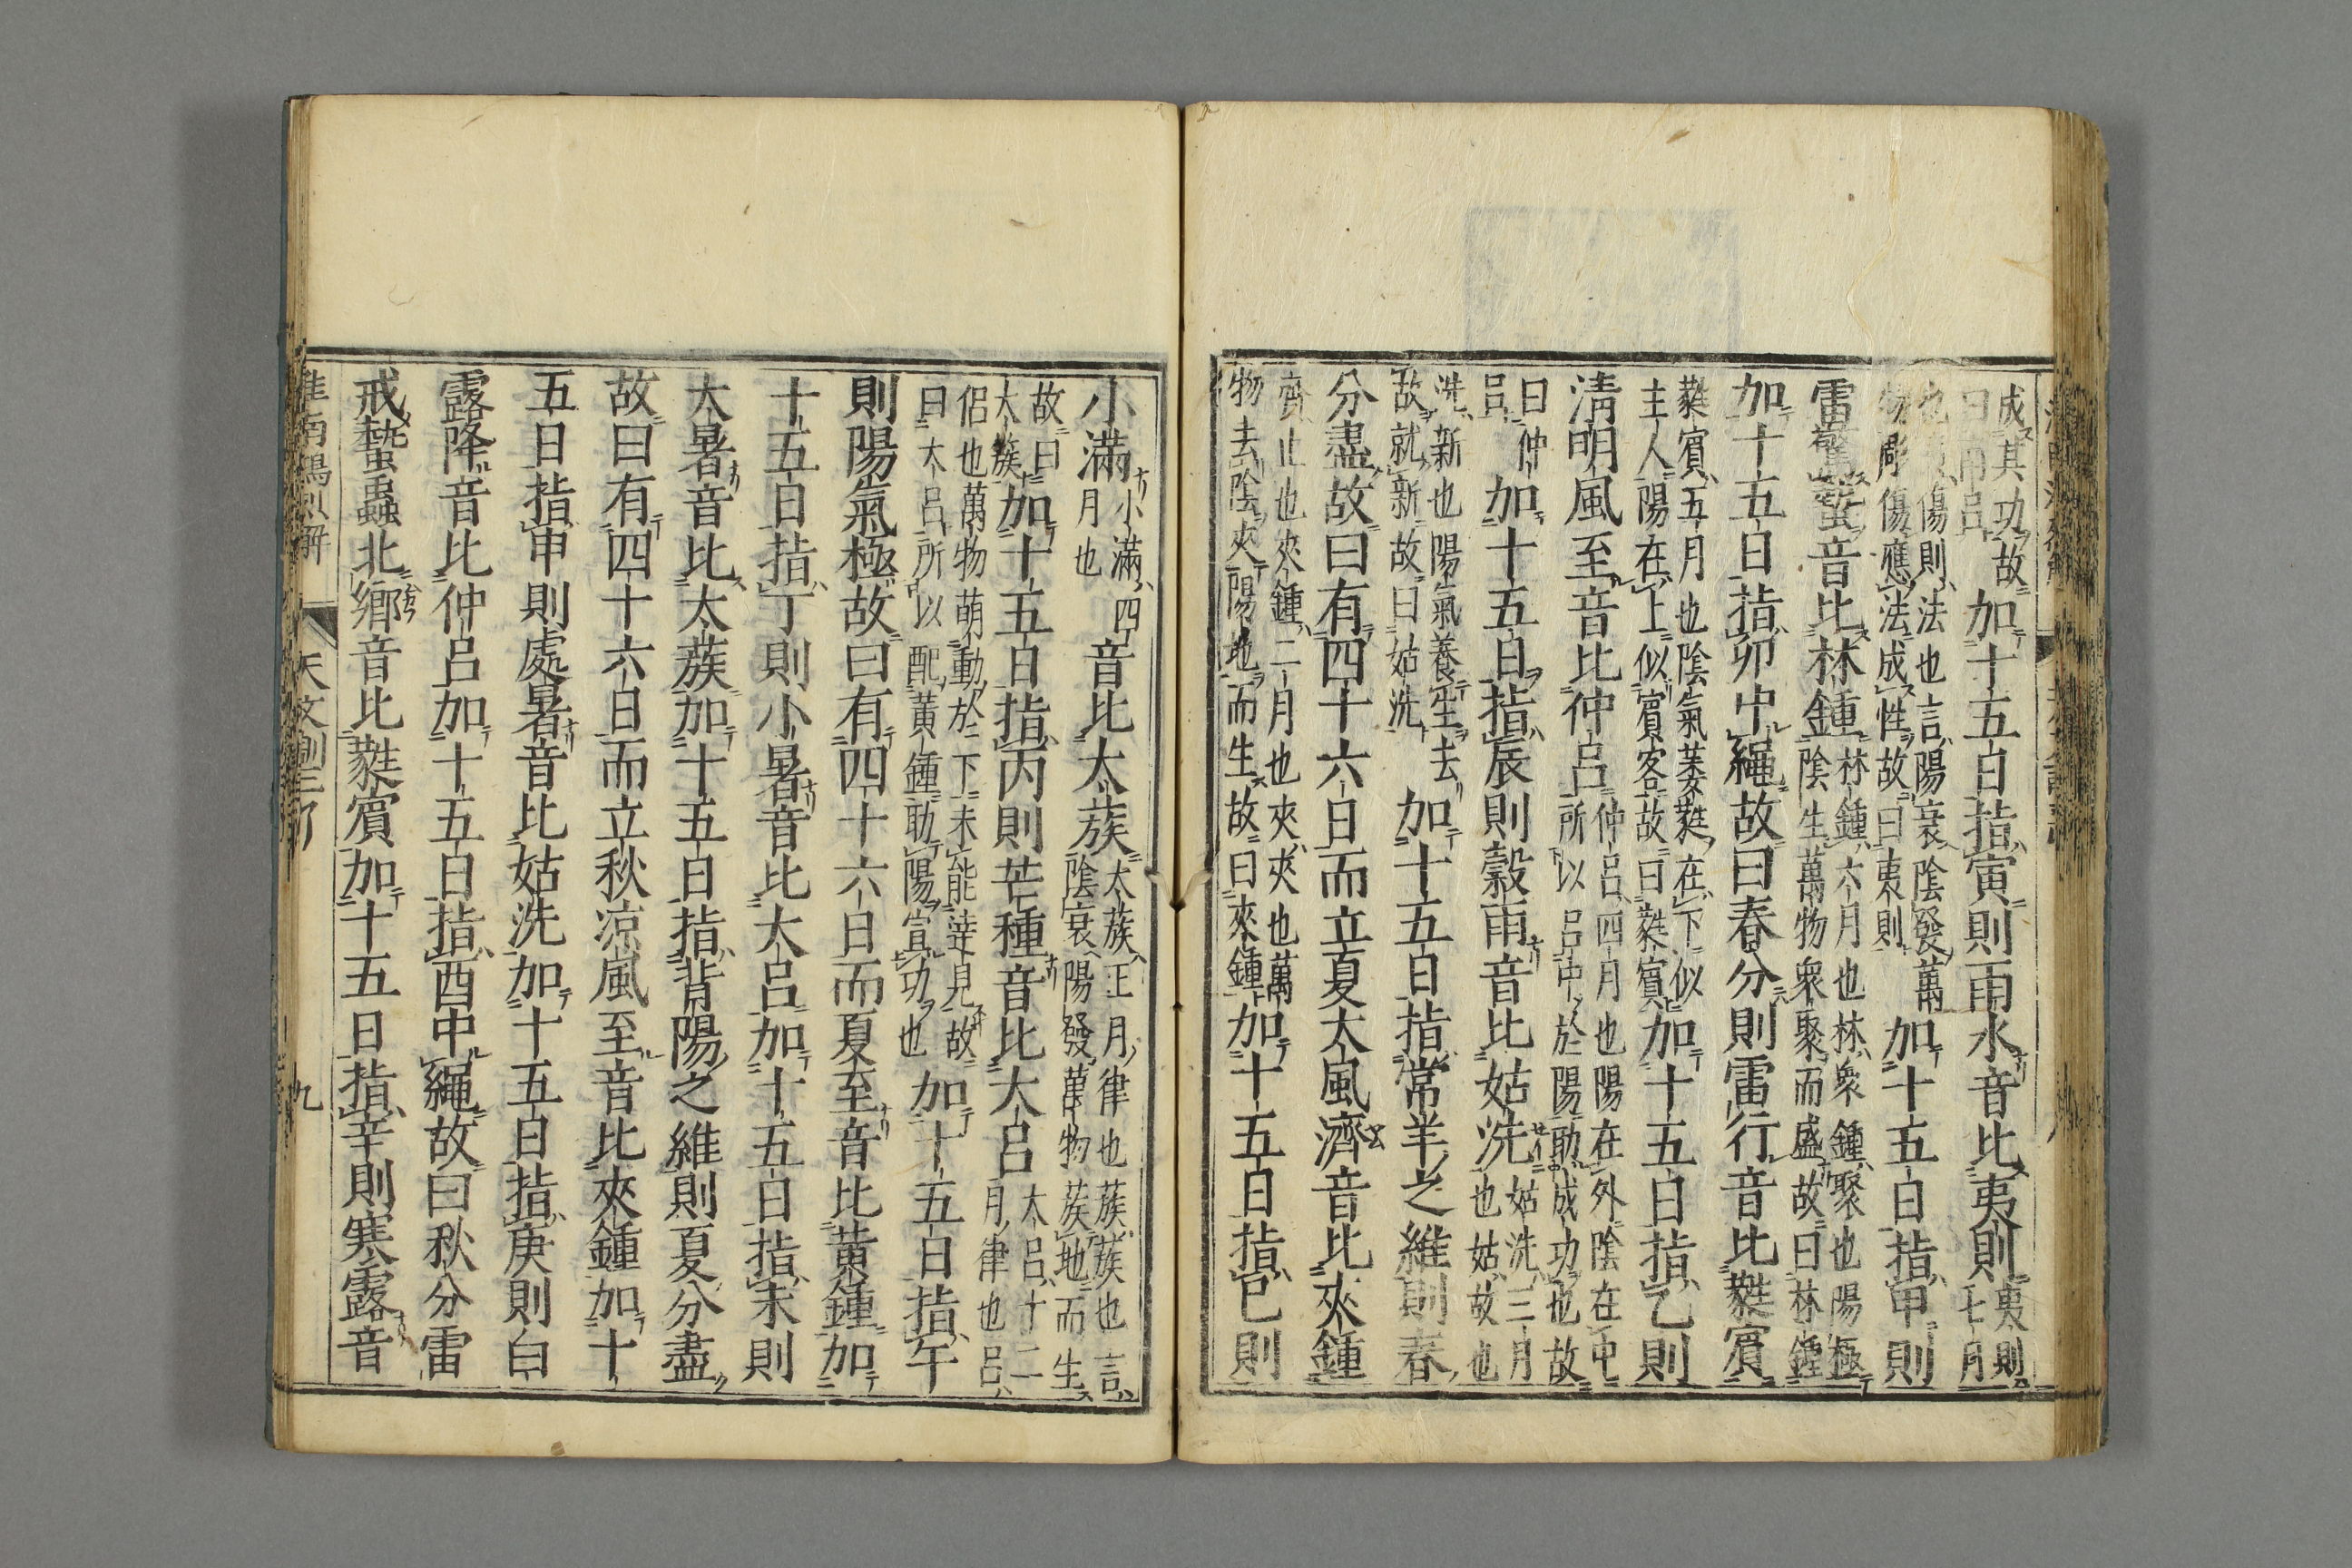 成其功故曰南呂加十五日指寅則雨水音比夷則夷則七月
也夷傷則法也言陽衰陰發萬物彫傷應法成性故曰夷則加十五日指甲則
雷驚蟄音比林鍾林鍾六月也林衆鍾聚也陽極陰生萬物衆聚而盛故曰林鍾
加十五日指卯中繩故曰春分則雷行音比蕤賓
蕤賓五月也陰氣萎蕤在下似主人陽在上似賓客故曰蕤賓加十五日指乙則
清明風至音比仲呂仲呂四月也陽在外陰在中所以呂中於陽助成功也故
曰仲呂加十五日指辰則穀雨音比姑洗姑洗三月也姑故也
洗新也陽氣養生去故就新故曰姑洗加十五日指常羊之維則春
分盡故曰有四十六日而立夏大風濟音比夾鍾
齊止也夾鍾二月也夾夾也萬物去陰夾陽地而生故曰夾鍾加十五日指巳則
小滿小滿四月也音比太蔟太蔟正月律也蔟蔟也言陰衰陽發萬物蔟地而生
故曰太蔟加十五日指丙則芒種音比大呂大呂十二月律也呂
侶也萬物萌動於下未能達見故曰大呂所以配黃鍾助陽宣功也加十五日指午
則陽氣極故曰有四十六日而夏至音比黃鍾加
十五日指丁則小暑音比大呂加十五日指未則
大暑音比太蔟加十五日指背陽之維則夏分盡
故曰有四十六日而立秋涼風至音比夾鍾加十
五日指申則處暑音比姑洗加十五日指庚則白
露降音比仲呂加十五日指酉中繩故曰秋分雷
戒蟄蟲北鄉音比蕤賓加十五日指辛則寒露音
淮南鴻烈解 天文訓 九